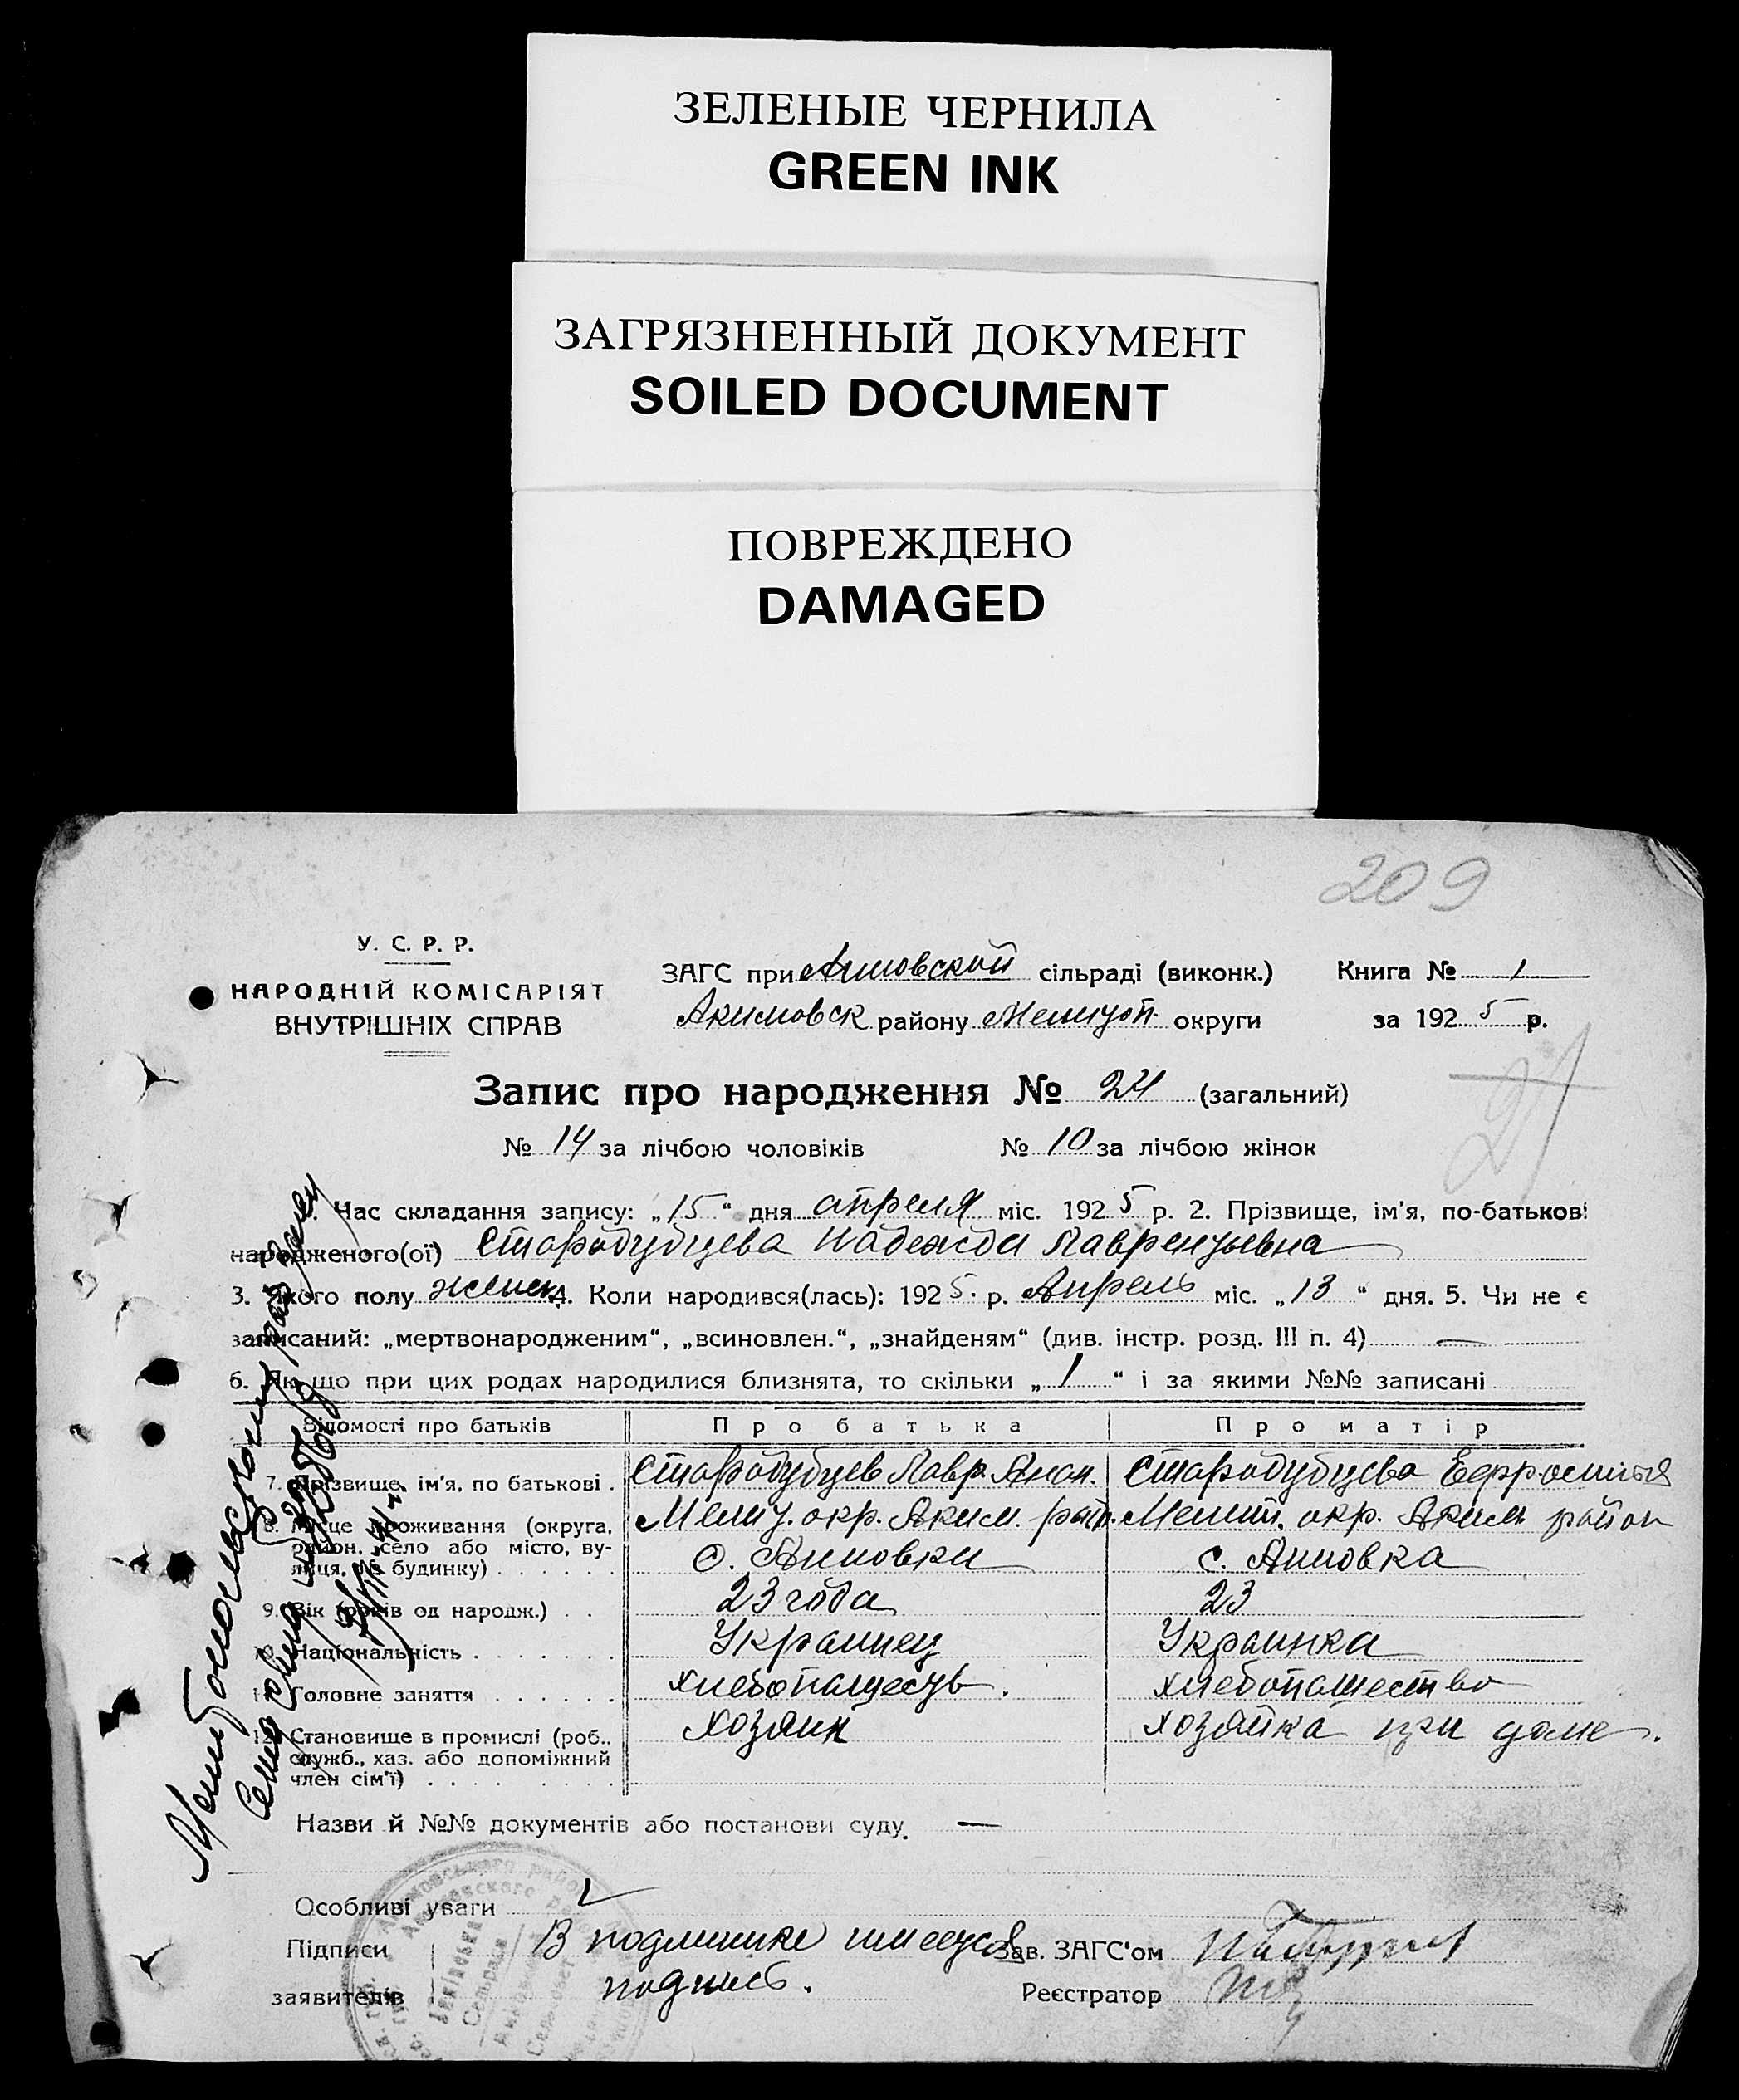 ЗЕЛЕНЫЕ ЧЕРНИЛА
GREEN INK
ЗАГРЯЗНЕННЫЙ ДОКУМЕНТ
SOILED DOCUMENT
ПОВРЕЖДЕНО
DAMAGED
209
У. С. Р. Р.
НАРОДНІЙ КОМІСАРІЯТ
ВНУТРІШНІХ СПРАВ
ЗАГС при Анновский сільраді (виконк.) Книга № 1
Акимовск району Мелитоп. округи за 1925 р.
Запис про народження № 24 (загальний)
№ 14 за лічбою чоловіків № 10 за лічбою жінок
1. Час складання запису: „15“ дня апреля міс. 1925 р. 2. Прізвище, ім'я, по-батькові
народженого(ої) Стародубцева Надежда Лаврентьевна
3. Якого полу женск 4. Коли народився(лась): 1925. р. Апрель міс. „13“ дня. 5. Чи не є
записаний: „мертвонародженим“, „всиновлен.“, „знайденям“ (див. інстр. розд. III п. 4) —
6. Як що при цих родах народилися близнята, то скільки „1“ і за якими №№ записані
Відомості про батьків Про батька Про матір
7. Прізвище, ім'я, по батькові . Стародубцев Лавр. Стародубцева Ефросинья
8. Місце проживання (округа, Мелит. окр. Аким. район. Мелит. окр. Аким район
район, село або місто, ву-
лиця, № будинку) . . . . . . с. Анновки с. Анновка
9. Вік (років од народж.) . . 23 года 23
10. Національність . . . . . . . Украинец Украинка
11. Головне заняття . . . . . . хлебопашеств. хлебопашество
12. Становище в промислі (роб., хозяин хозяйка при доме.
служб., хаз. або допоміжний
член сім'ї) . . . . . . . . .
Назви й №№ документів або постанови суду. —
Особливі уваги
Підписи В подлинике имеется Зав. ЗАГС'ом
заявителів подпись. Реєстратор